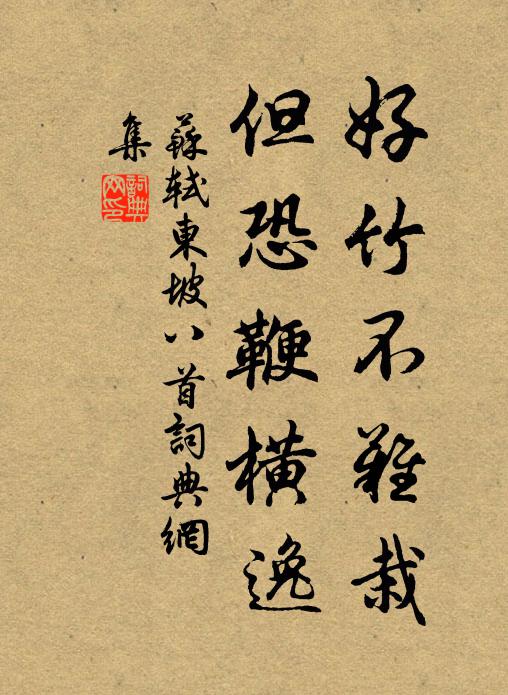 好竹不難栽
但恐鞭橫逸
蘇軾東坡八首詞典網
集
詞典
網印